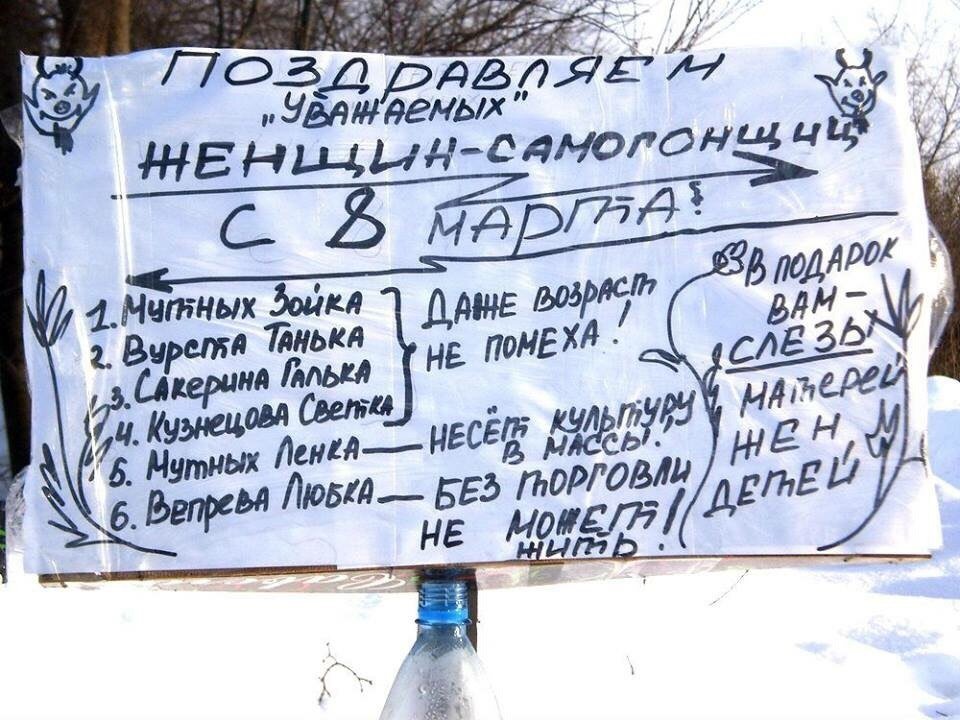 ПОЗДРАВЛЯЕМ
„УВАЖАЕМЫХ"
ЖЕНЩИН-САМОГОНЩИЦ
С 8 МАРТА!
1. Мутных Зойка
2. Вурста Танька
3. Сакерина Галька
4. Кузнецова Светка
ДАЖЕ ВОЗРАСТ
НЕ ПОМЕХА!
5. Мутных Ленка — НЕСЁТ КУЛЬТУРУ
В МАССЫ!
6. Вепрева Любка — БЕЗ ТОРГОВЛИ
НЕ МОЖЕТ
ЖИТЬ!
В ПОДАРОК
ВАМ —
СЛЕЗЫ
МАТЕРЕЙ
ЖЕН, И
ДЕТЕЙ